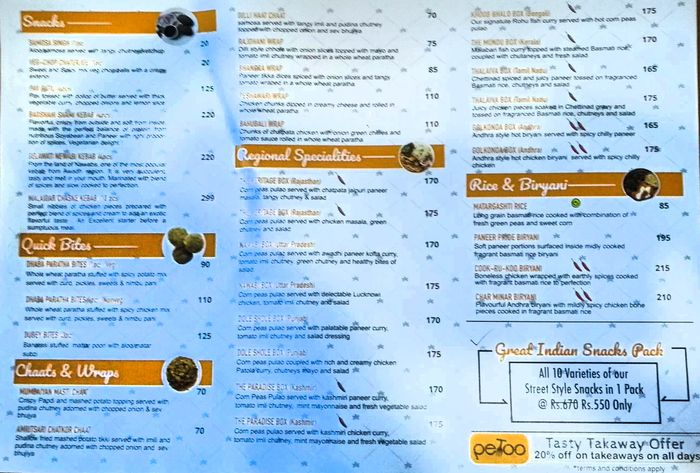 Snacks
SAMOSA SINGH
20
20
125
BADSHAHI SHAMI KEBAB
220
Flavorful, crispy from outside and soft from inside
made with the perfect balance of protein from
nutritious Soyabean and Paneer with right propor-
tion of spices. Vegetarian delight
GELAWATI NEWABI KEBAB
220
From the land of Nawabs, one of the most popular
kebab from Awadh region. It is very succulent,
tasty and melt in your mouth. Marinated with blend
of spices and slow cooked to perfection.
MALABAR CHASKE KEBAB
299
Small nibbles of chicken pieces prepared with
perfect blend of spices and cream to add an exotic
flavorful taste. An Excellent starter before a
sumptuous meal.
Quick Bites
DHABA PARATHA BITES
90
Whole wheat paratha stuffed with spicy potato mix
served with curd, pickles, sweets & nimbu pani
DHABA PARATHA BITES
110
Whole wheat paratha stuffed with spicy chicken mix
served with curd, pickles, sweets & nimbu pani
DUBEY BITES
125
Chaats & Wraps
MUMBAIYAN MAST CHAAT
70
Crispy Papdi and mashed potato topping served with
pudina chutney adorned with chopped onion & sev
bhujiya
AMRITSARI CHATKOR CHAAT
70
Shallow fried mashed potato tikki served with imli and
pudina chutney adorned with chopped onion & sev
bhujiya
DILLI HAAT CHAAT
70
samosa served with tangy imli and pudina chutney
topped with chopped onion and sev bhujiya
RAJDHANI WRAP
75
Dilli style dhokle with onion slices topped with mayo and
tomato imli chutney wrapped in a whole wheat paratha
BHANGRA WRAP
85
Paneer tikka dices spiced with onion slices and tangy
tomato wrapped in a whole wheat paratha
PESHAWARI WRAP
110
Chicken chunks dipped in creamy cheese and rolled in
whole wheat paratha
BAHUBALI WRAP
110
Chunks of chatpata chicken with onion green chillies and
tomato sauce rolled in a whole wheat paratha
Regional Specialities
THE HERITAGE BOX (Rajasthan)
170
Corn peas pulao served with chatpata jaipuri paneer
masala, tangy chutney & salad
THE HERITAGE BOX (Rajasthan)
175
Corn peas pulao served with chicken masala, green
chutney and salad
NAWABI BOX (Uttar Pradesh)
170
Corn peas pulao served with awadhi paneer kofta curry,
tomato imli chutney, green chutney and healthy bites of
salad
NAWABI BOX (Uttar Pradesh)
175
Corn peas pulao served with delectable Lucknowi
chicken, tomato imli chutney and salad
DOLE SHOLE BOX (Punjab)
170
Corn peas pulao served with palatable paneer curry,
tomato imli chutney and salad dressing
DOLE SHOLE (Punjab)
175
Corn peas pulao coupled with rich and creamy chicken
Patiala curry, chutneys mayo and salad
THE PARADISE BOX (Kashmir)
170
Corn Peas Pulao served with kashmiri paneer curry,
tomato imli chutney, mint mayonnaise and fresh vegetable salad
THE PARADISE BOX (Kashmir)
175
Corn peas pulao served with kashmiri chicken curry,
tomato imli chutney, mint mayonnaise and fresh vegetable salad
KHOOB BHALO BOX (Bengali)
175
Our signature Rohu fish curry served with hot corn peas
pulao
THE MONDU BOX (Kerala)
170
Malabari fish curry topped with steamed Basmati rice,
coupled with chutaneys and fresh salad
THALAIVA BOX (Tamil Nadu)
165
Chettinad spiced and juicy paneer tossed in fragranced
Basmati rice, chutneys and salad
THALAIVA BOX (Tamil Nadu)
175
Juicy chicken pieces soaked in Chettinad gravy and
tossed on fragranced Basmati rice, chutneys and salad
GOLKONDA BOX (Andhra)
165
Andhra style hot biryani served with spicy chilly paneer
GOLKONDA BOX (Andhra)
175
Andhra style hot chicken biryani served with spicy chilly
chicken
Rice & Biryani
MATARGASHTI RICE
85
Long grain basmati rice cooked with combination of
fresh green peas and sweet corn
PANEER PRIDE BIRYANI
195
Soft paneer portions surfaced inside mildly cooked
fragrant basmati rice biryani
COOK-RU-KOO BIRYANI
215
Boneless chicken wrapped with earthly spices cooked
with fragrant basmati rice to perfection
CHAR MINAR BIRYANI
210
Flavourful Andhra biryani with mildly spicy chicken bone
pieces cooked in fragrant basmati rice
Great Indian Snacks Pack
All 10 Varieties of our
Street Style Snacks in 1 Pack
@ Rs.670 Rs.550 Only
petoo
Tasty Takaway Offer
20% off on takeaways on all days
*terms and conditions apply